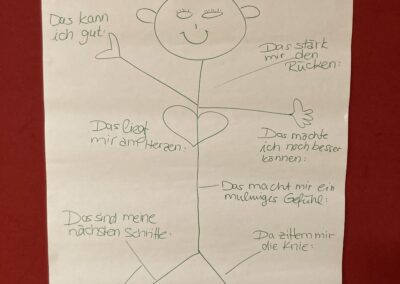 Das kann
ich gut:
Das stärk
mir den
Rücken:
Das liegt
mir am Herzen:
Das möchte
ich noch besser
können:
Das macht mir ein
mulmiges Gefühl:
Das sind meine
nächsten Schritte:
Da zittern mir
die Knie: